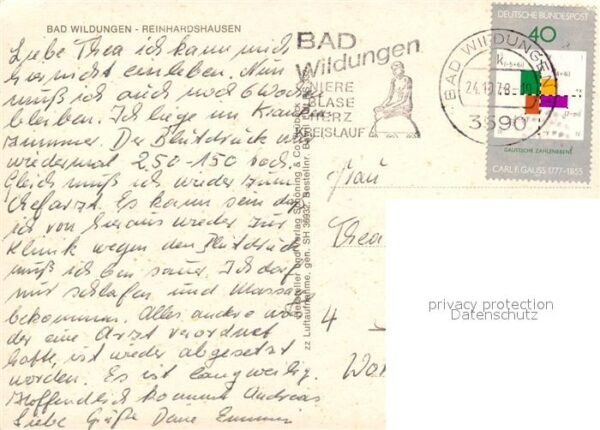 BAD WILDUNGEN - REINHARDSHAUSEN
Liebe Thea ich kann mich
hier nicht einleben. Nun
muß ich auch noch 6 Wochen
bleiben. Ich liege im Kranken
zimmer. Der Blutdruck war
wiedermal 250-150 hoch.
Gleich muß ich wieder zum
Chefarzt. Es kann sein daß
ich von hieraus wieder zur
Klinik wegen den Blutdruck
muß ich bin sauer. Ich darf
nur schlafen und Massage
bekommen. Alles andre was
der eine Arzt verordnet
hatte, ist wieder abgesetzt
worden. Es ist langweilig.
Hoffendlich kommt Andreas
Liebe Grüße Deine
BAD
Wildungen
NIERE
BLASE
HERZ
KREISLAUF
BAD WILDUNGEN
3590
DEUTSCHE BUNDESPOST
40
GAUSSSCHE ZAHLENEBENE
CARL F. GAUSS 1777-1855
Hersteller und Verlag Schöning & Co
zz Luftaufnahme, gen. SH 36/932, Bestellnr.
Frau
Thea
4
privacy protection
Datenschutz